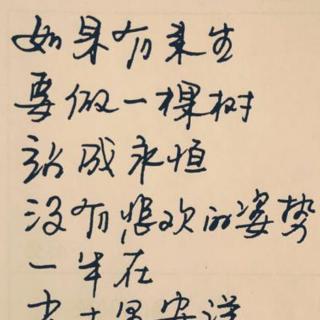 如果有来生
要做一棵树
站成永恒
没有悲欢的姿势
一半在
尘土里安详